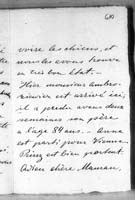 voire les chiens, et
nous les avons trouvé
en très bon état.
Hier monsieur
est arrivé ici,
il a perdu avant deux
semaines son père
à l'age 84 ans. Anna
est parti pour Vienne
bien portant
Adieu chère Maman,